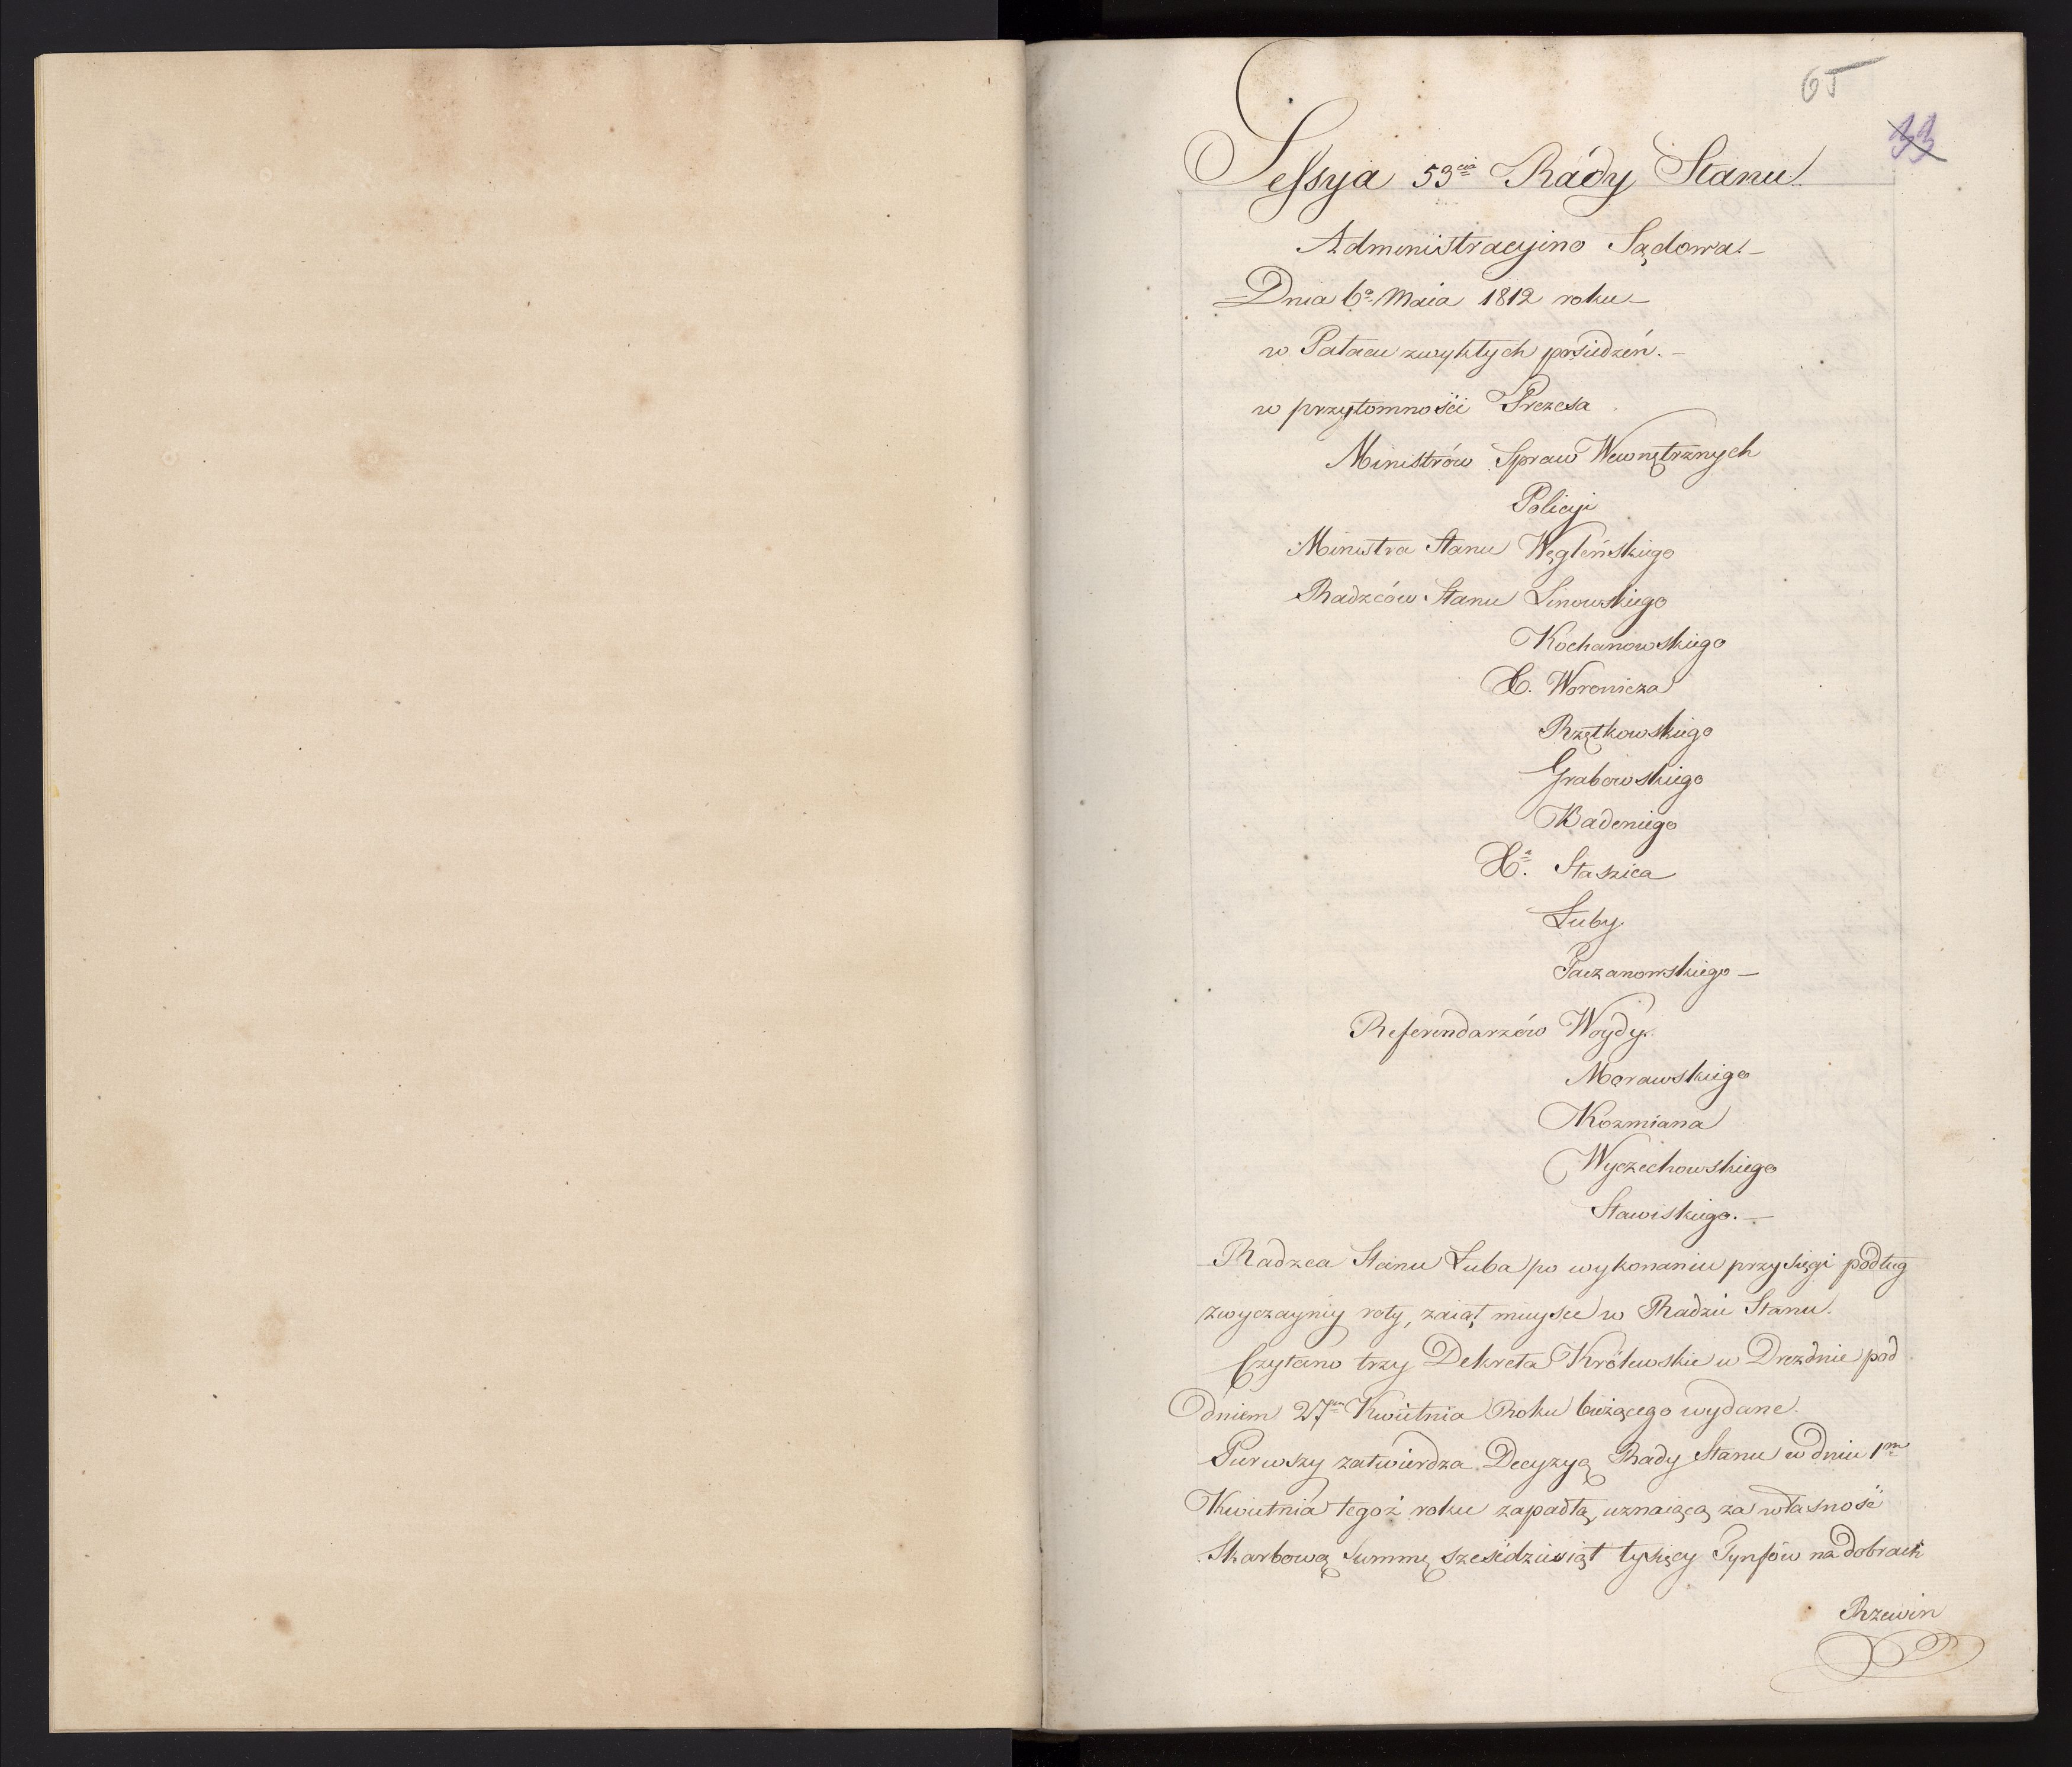 65
33
Sessya 53cia Rady Stanu
Administracyino Sądowa.
Dnia 6o Maia 1812 roku
w Pałacu zwykłych posiedzeń.
w przytomności Prezesa
Ministrów Spraw Wewnętrznych
Policyi
Ministra Stanu Węgleńskiego
Radzców Stanu Linowskiego
Kochanowskiego
X. Woronicza
Rzętkowskiego
Grabowskiego
Badeniego
Xa. Staszica
Luby
Paczanowskiego
Referendarzów Woydy.
Morawskiego
Kozmiana
Wyczechowskiego
Stawiskiego.
Radzca Stanu Luba po wykonaniu przysięgi podług
zwyczayniy roty, zaiął mieysce w Radzie Stanu.
Czytano trzy Dekreta Królewskie w Dreznie pod
dniem 27m Kwietnia Roku bieżącego wydane.
Pierwszy zatwierdza Decyzyą Rady Stanu w dniu 1m
Kwietnia tegoż roku zapadłą, uznaiącą za własność
Skarbową Summę sześćdziesiąt tysięcy Tynfów na dobrach
Rzewin